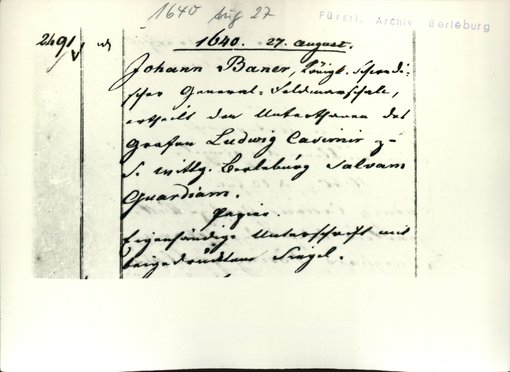 1640 Aug 27
Fürstl. Archiv Berleburg
2491
1640. 27. August.
Johann Baner, Königl. Schwedi-
scher General-Feldmarschall,
ertheilt den Unterthanen des
Grafen Ludwig Casimir z-
S. Wittg. Berleburg Salvam
Guardiam.
Papier.
Eigenhändige Unterschrift mit
beigedrucktem Siegel.